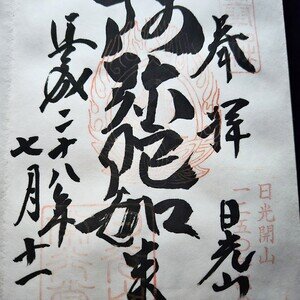 奉拝
日光山
日光開山
一二五〇
阿弥陀如来
平成二十八年
七月十一